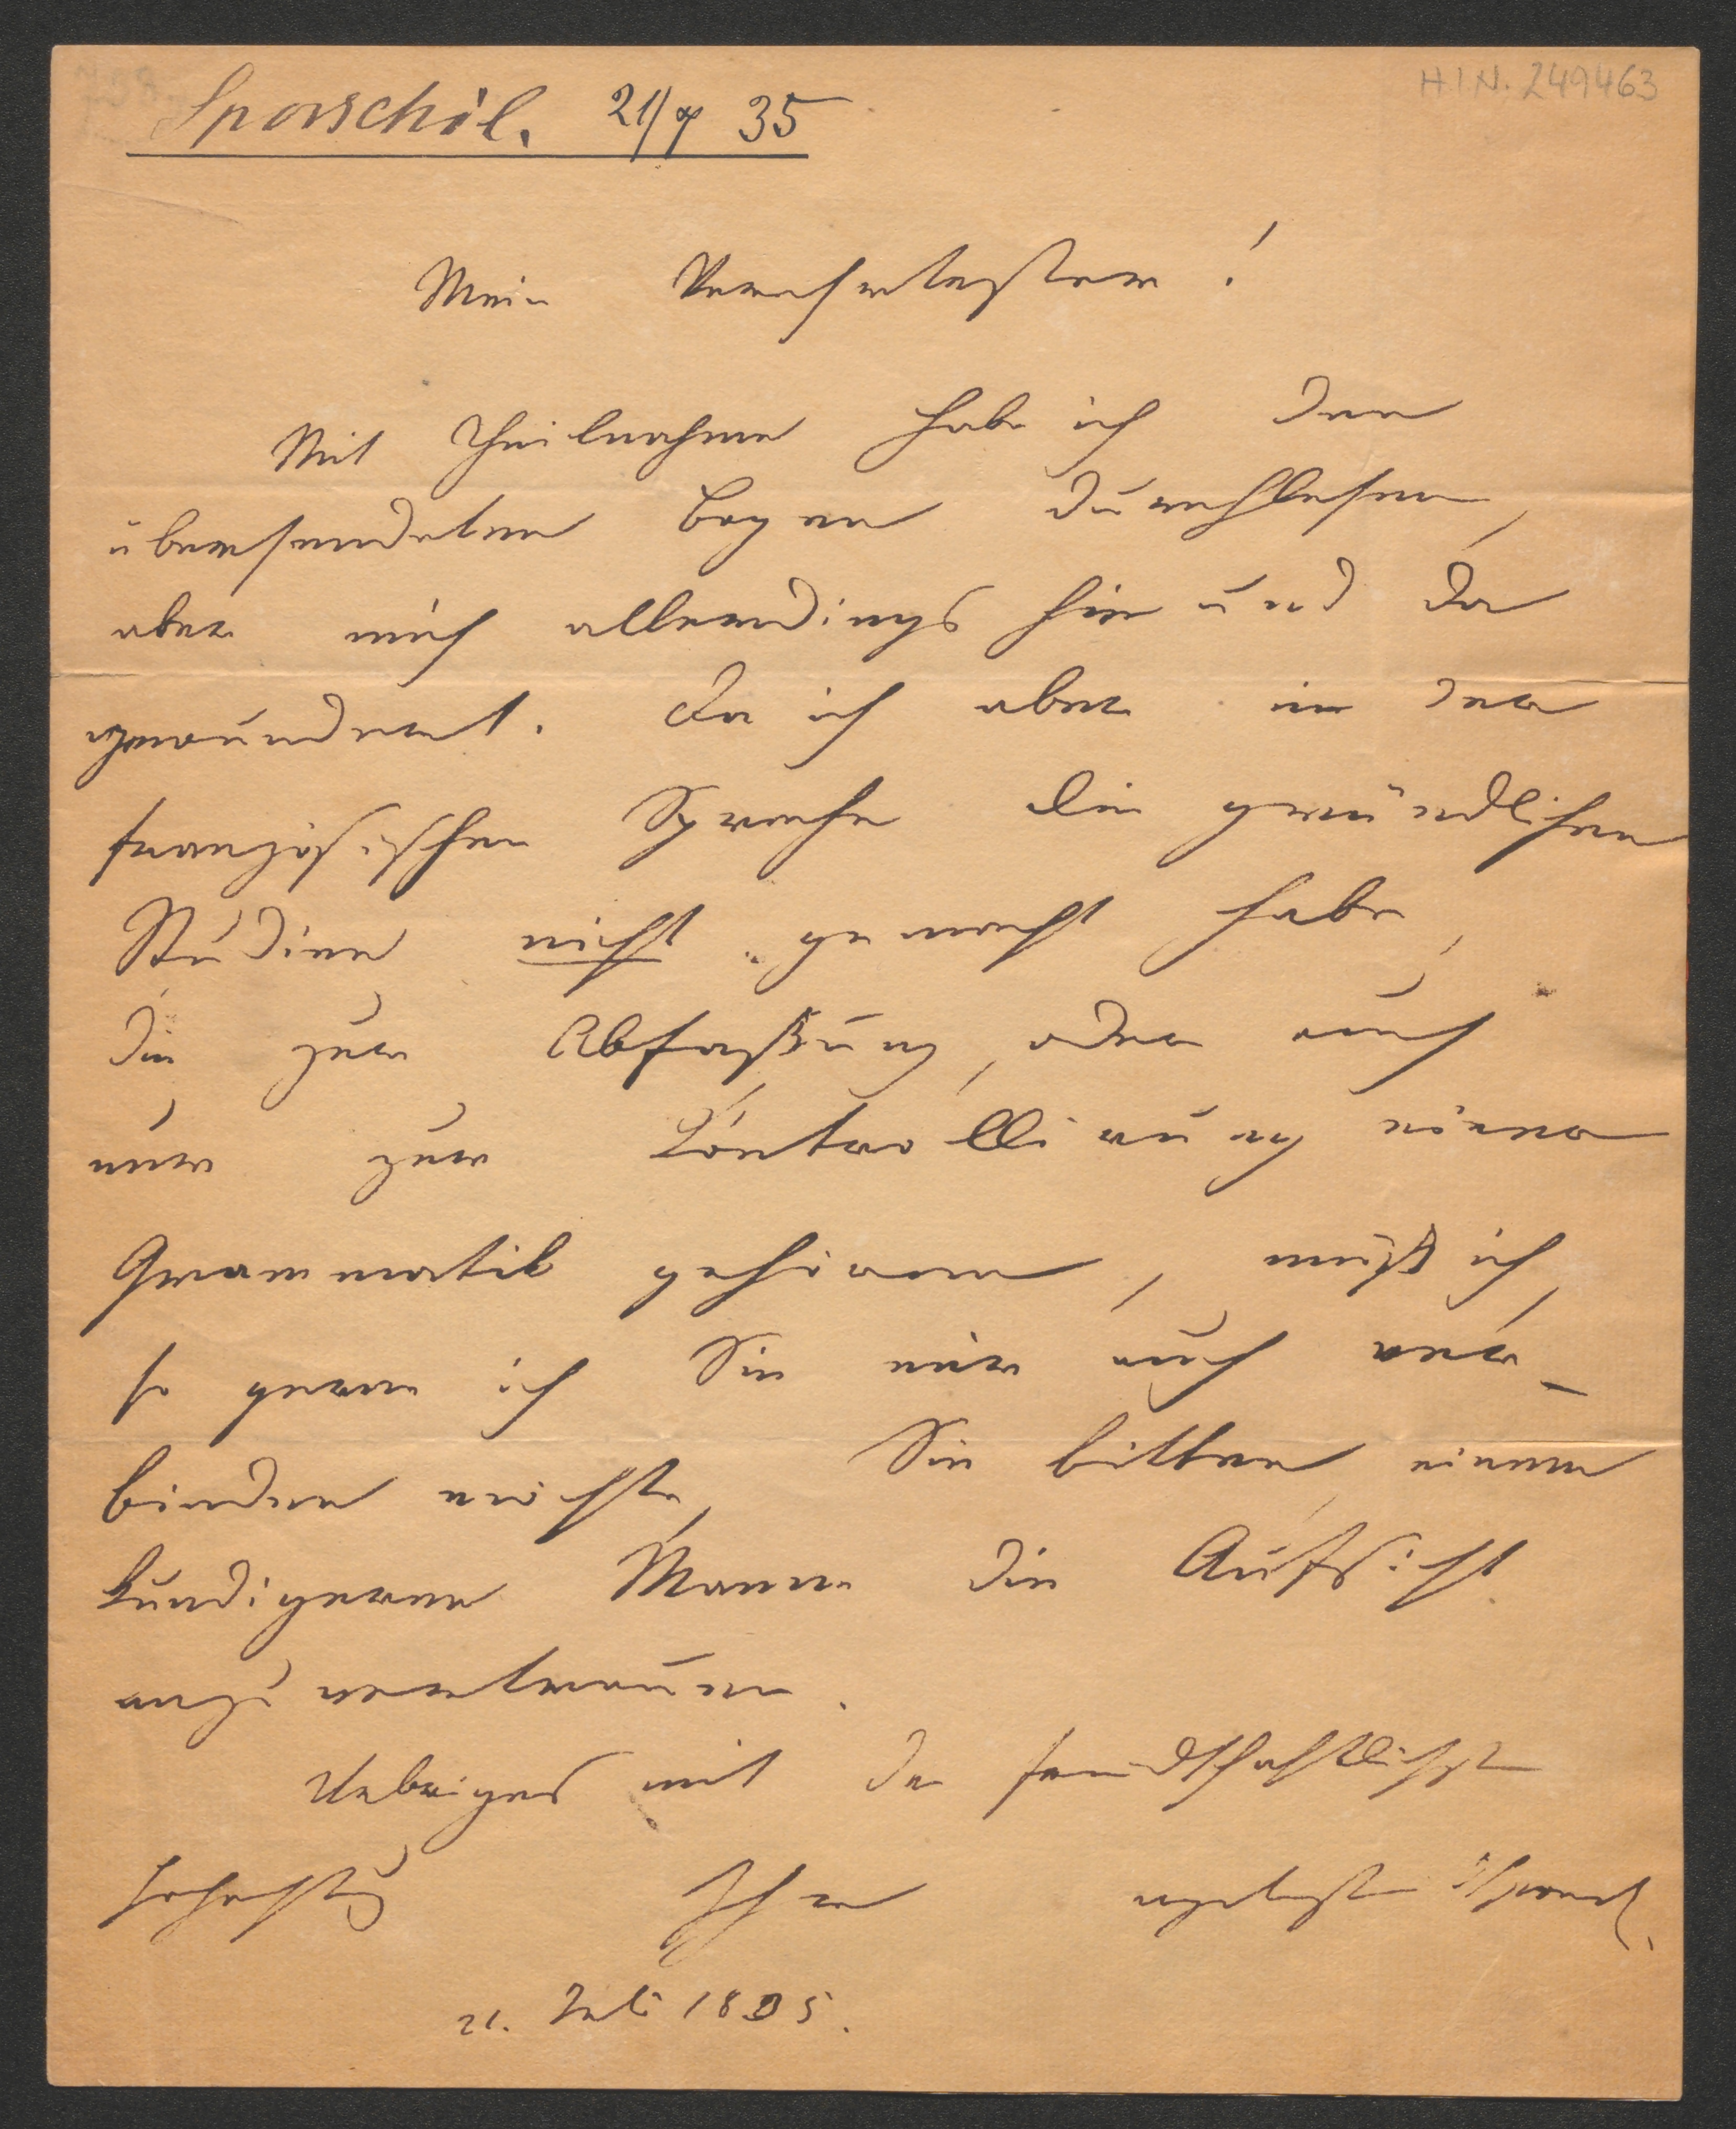 H.I.N. 249463
Sporschil. 21/7 35
Mein Verehrtester!
Mit Theilnahme habe ich den
übersendeten Bogen durchlesen,
aber mich allerdings hie und da
gewundert. Da ich aber in der
französischen Sprache die gründlichen
Studien nicht gemacht habe,
die zur Abfaßung, oder auch
nur zur Controllirung einer
Grammatik gehören, muß ich,
so gerne ich Sie mir auch ver-
binden möchte, Sie bitten einem
kundigeren Manne die Aufsicht
anzuvertrauen.
Uebrigens mit der freundschaftlichsten
Hochachtung Ihr
21. Juli 1835.